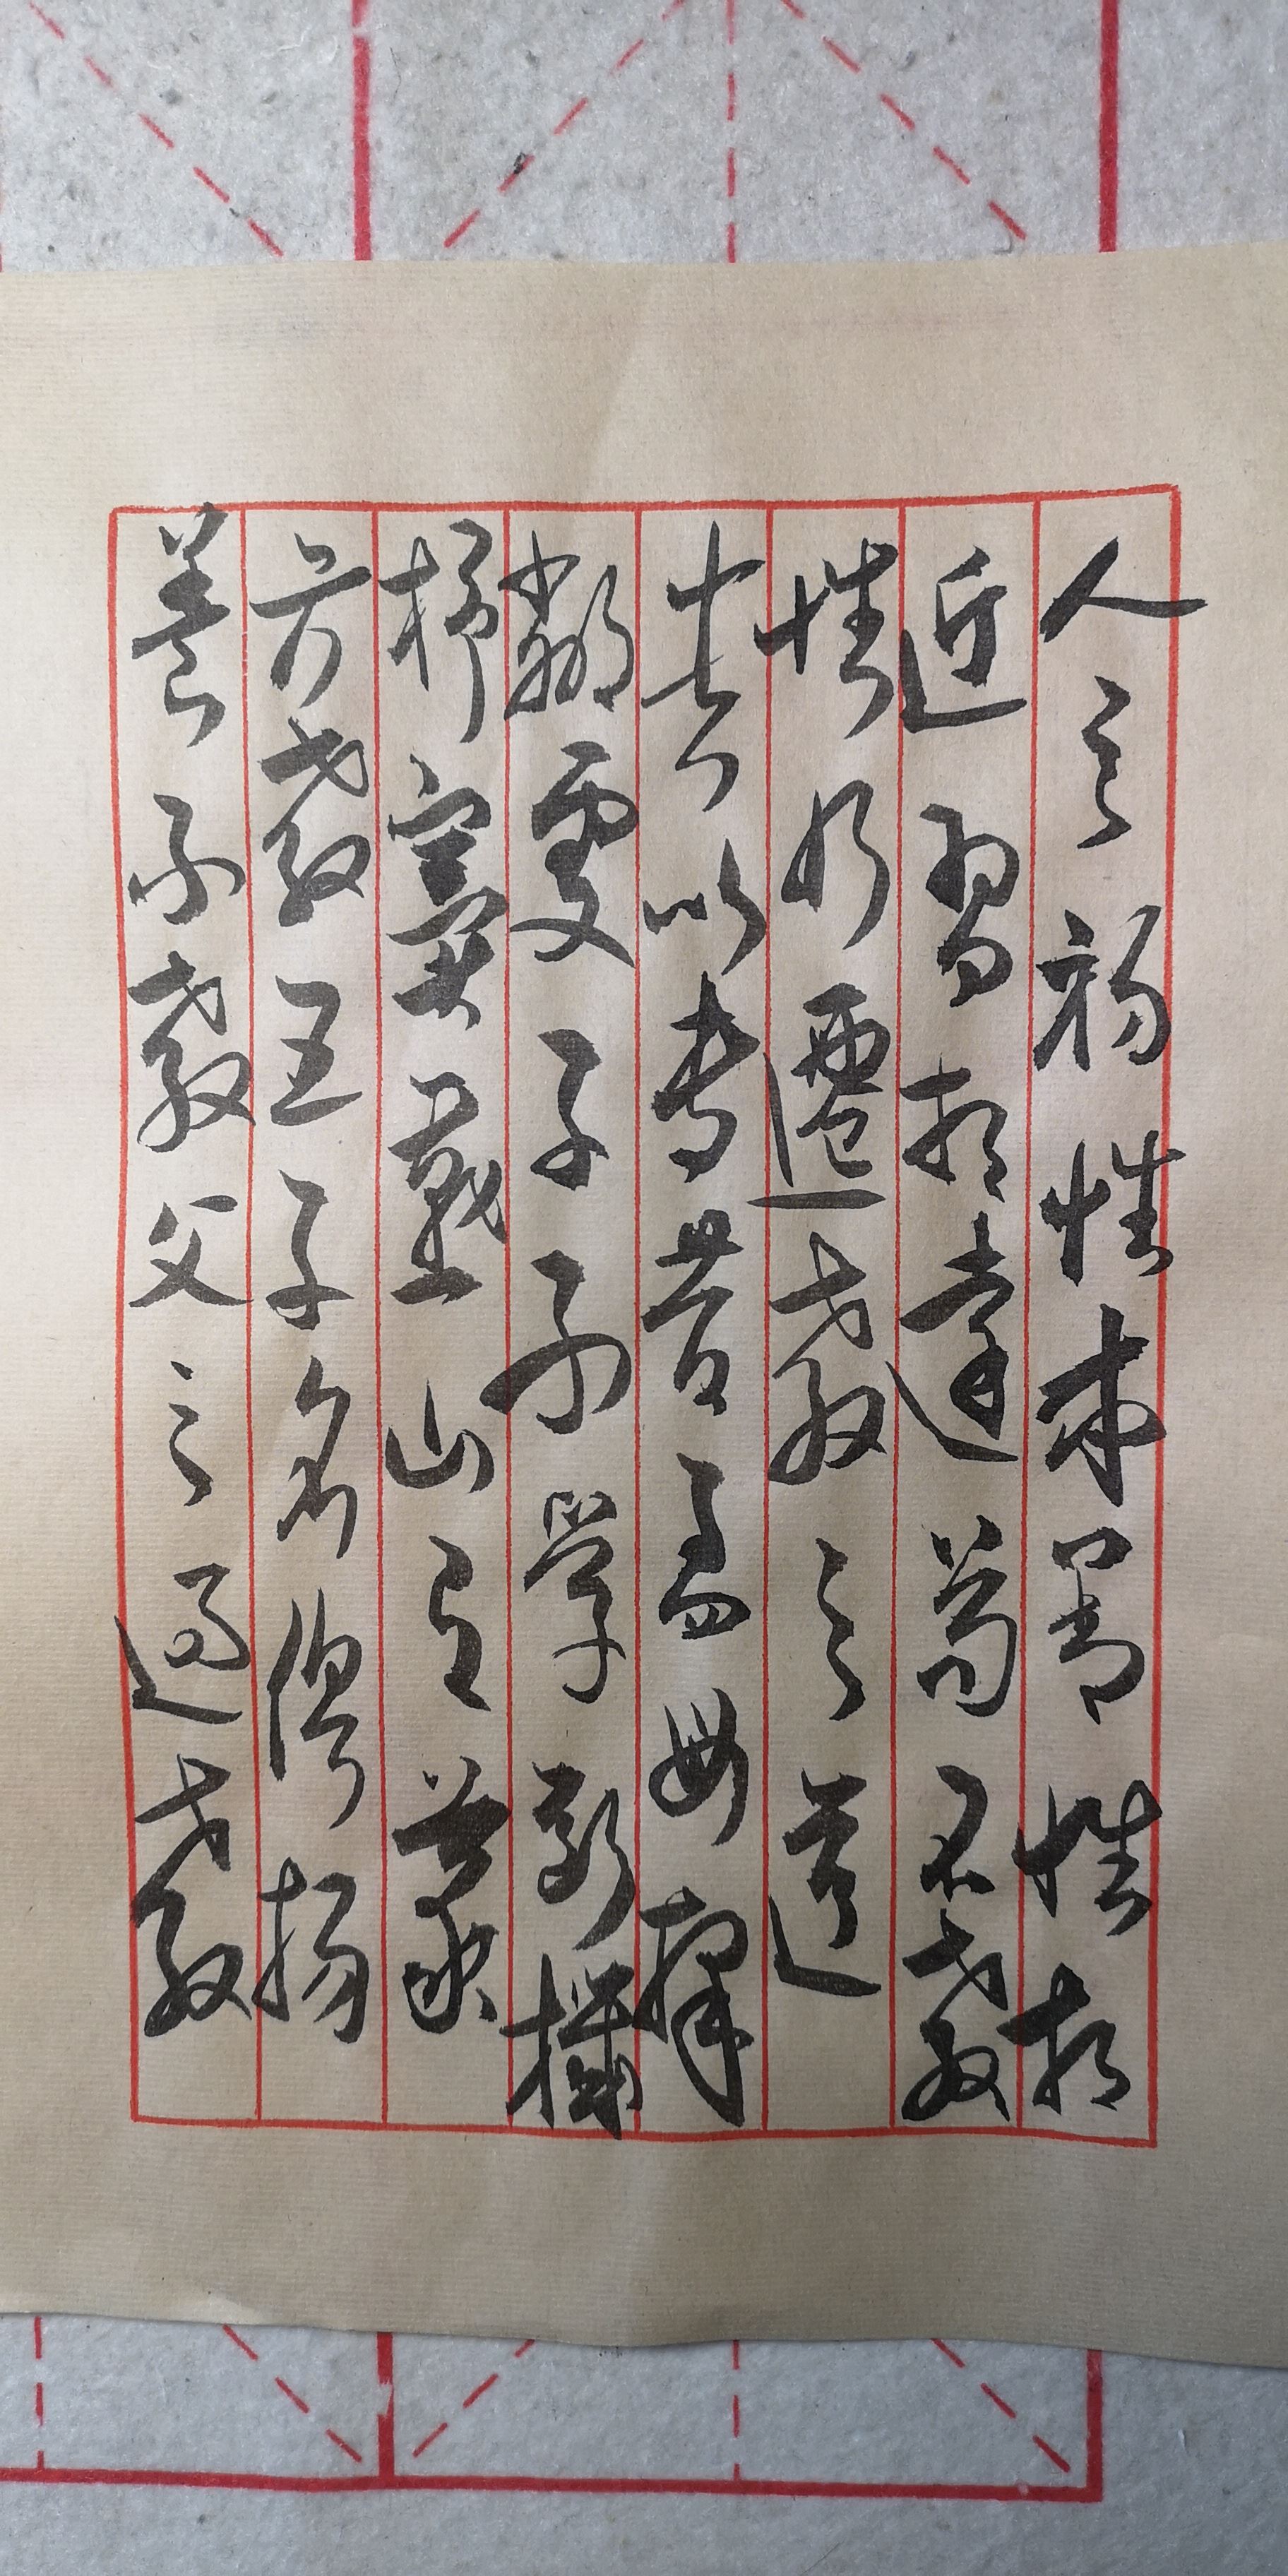 人之初性本善性相
近習相遠苟不教
性乃遷教之道
貴以專昔孟母擇
鄰處子不學斷機
杼竇燕山有義
方教五子名俱揚
養不教父之過教